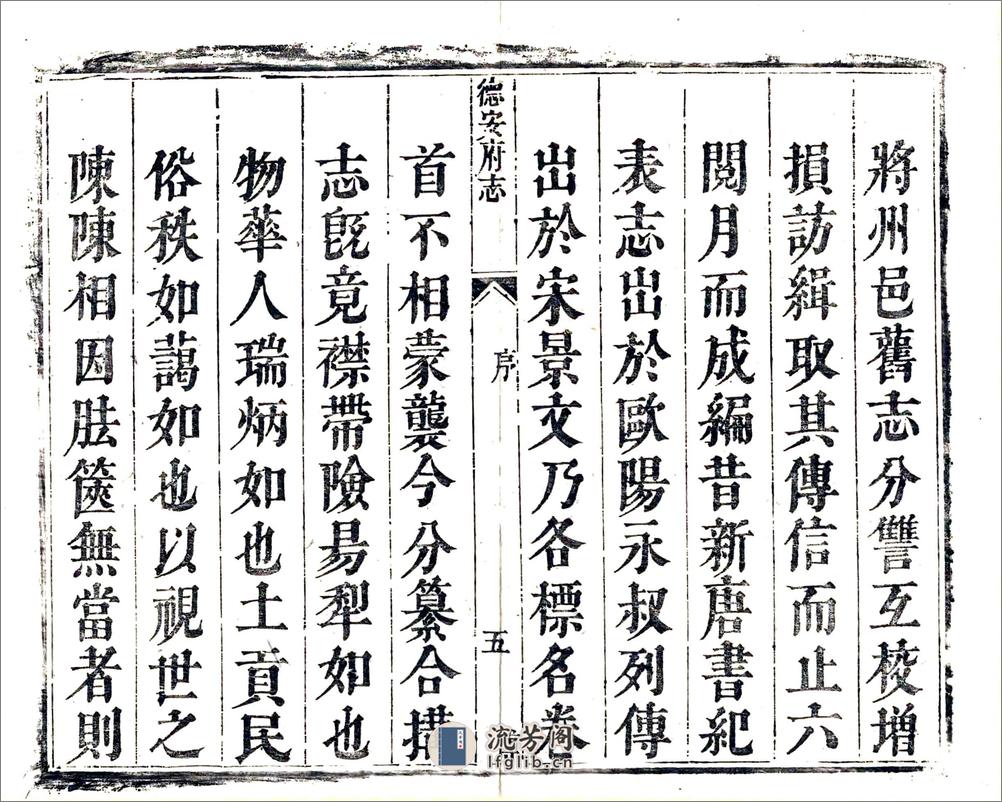 將州邑舊志分讐互挍增
損訪緝取其傳信而止六
閱月而成編昔新唐書紀
表志出於歐陽永叔列傳
出於宋景文乃各標名卷
德安府志
序
五
首不相蒙襲今分纂合撰
志旣竟襟帶險易犁如也
物華人瑞炳如也土貢民
俗秩如藹如也以視世之
陳陳相因胠篋無當者則
流芳阁
lfglib.cn